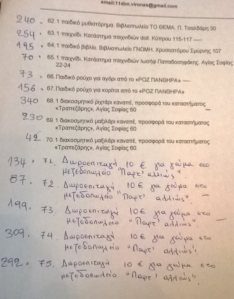 email:11dim.vironas@gmail.com
240 - 62. 1 παιδικό μυθιστόρημα. Βιβλιοπωλείο ΤΟ ΘΕΜΑ. Π. Τσαλδάρη 30
254 • 63. 1 παιχνίδι. Κατάστημα παιχνιδιών Κύπρου 115-117
195 • 64. 1 παιδικό βιβλίο. Βιβλιοπωλείο ΓΝΩΜΗ. Χρυσοστόμου Σμύρνης 107
70 • 65. 1 παιχνίδι. Κατάστημα παιχνιδιών Ιωσήφ Παπαδοσηφάκης. Αγίας Σοφίας
22-24
73 • 66. Παιδικό ρούχο για αγόρι από το «ΡΟΖ ΠΑΝΘΗΡΑ»
156 • 67. Παιδικό ρούχο για κορίτσι από το «ΡΟΖ ΠΑΝΘΗΡΑ»
340 68. 1 διακοσμητικό μαξιλάρι καναπέ, προσφορά του καταστήματος
«Τραπεζάρης», Αγίας Σοφίας 60
230 69. 1 διακοσμητικό μαξιλάρι καναπέ, προσφορά του καταστήματος
«Τραπεζάρης», Αγίας Σοφίας 60
42 70. 1 διακοσμητικό μαξιλάρι καναπέ, προσφορά του καταστήματος
«Τραπεζάρης», Αγίας Σοφίας 60
134 • 71. Δωροεπιταγή 10 € για γεύμα στο
μεζεδοπωλείο "Παρτ' αλλιώς".
87. 72. Δωροεπιταγή 10 € για γεύμα στο
μεζεδοπωλείο "Παρτ' αλλιώς".
199. 73. Δωροεπιταγή 10 € για γεύμα στο
μεζεδοπωλείο "Παρτ' αλλιώς".
309. 74. Δωροεπιταγή 10 € για γεύμα στο
μεζεδοπωλείο "Παρτ' αλλιώς".
292. 75. Δωροεπιταγή 10 € για γεύμα στο
μεζεδοπωλείο "Παρτ' αλλιώς".